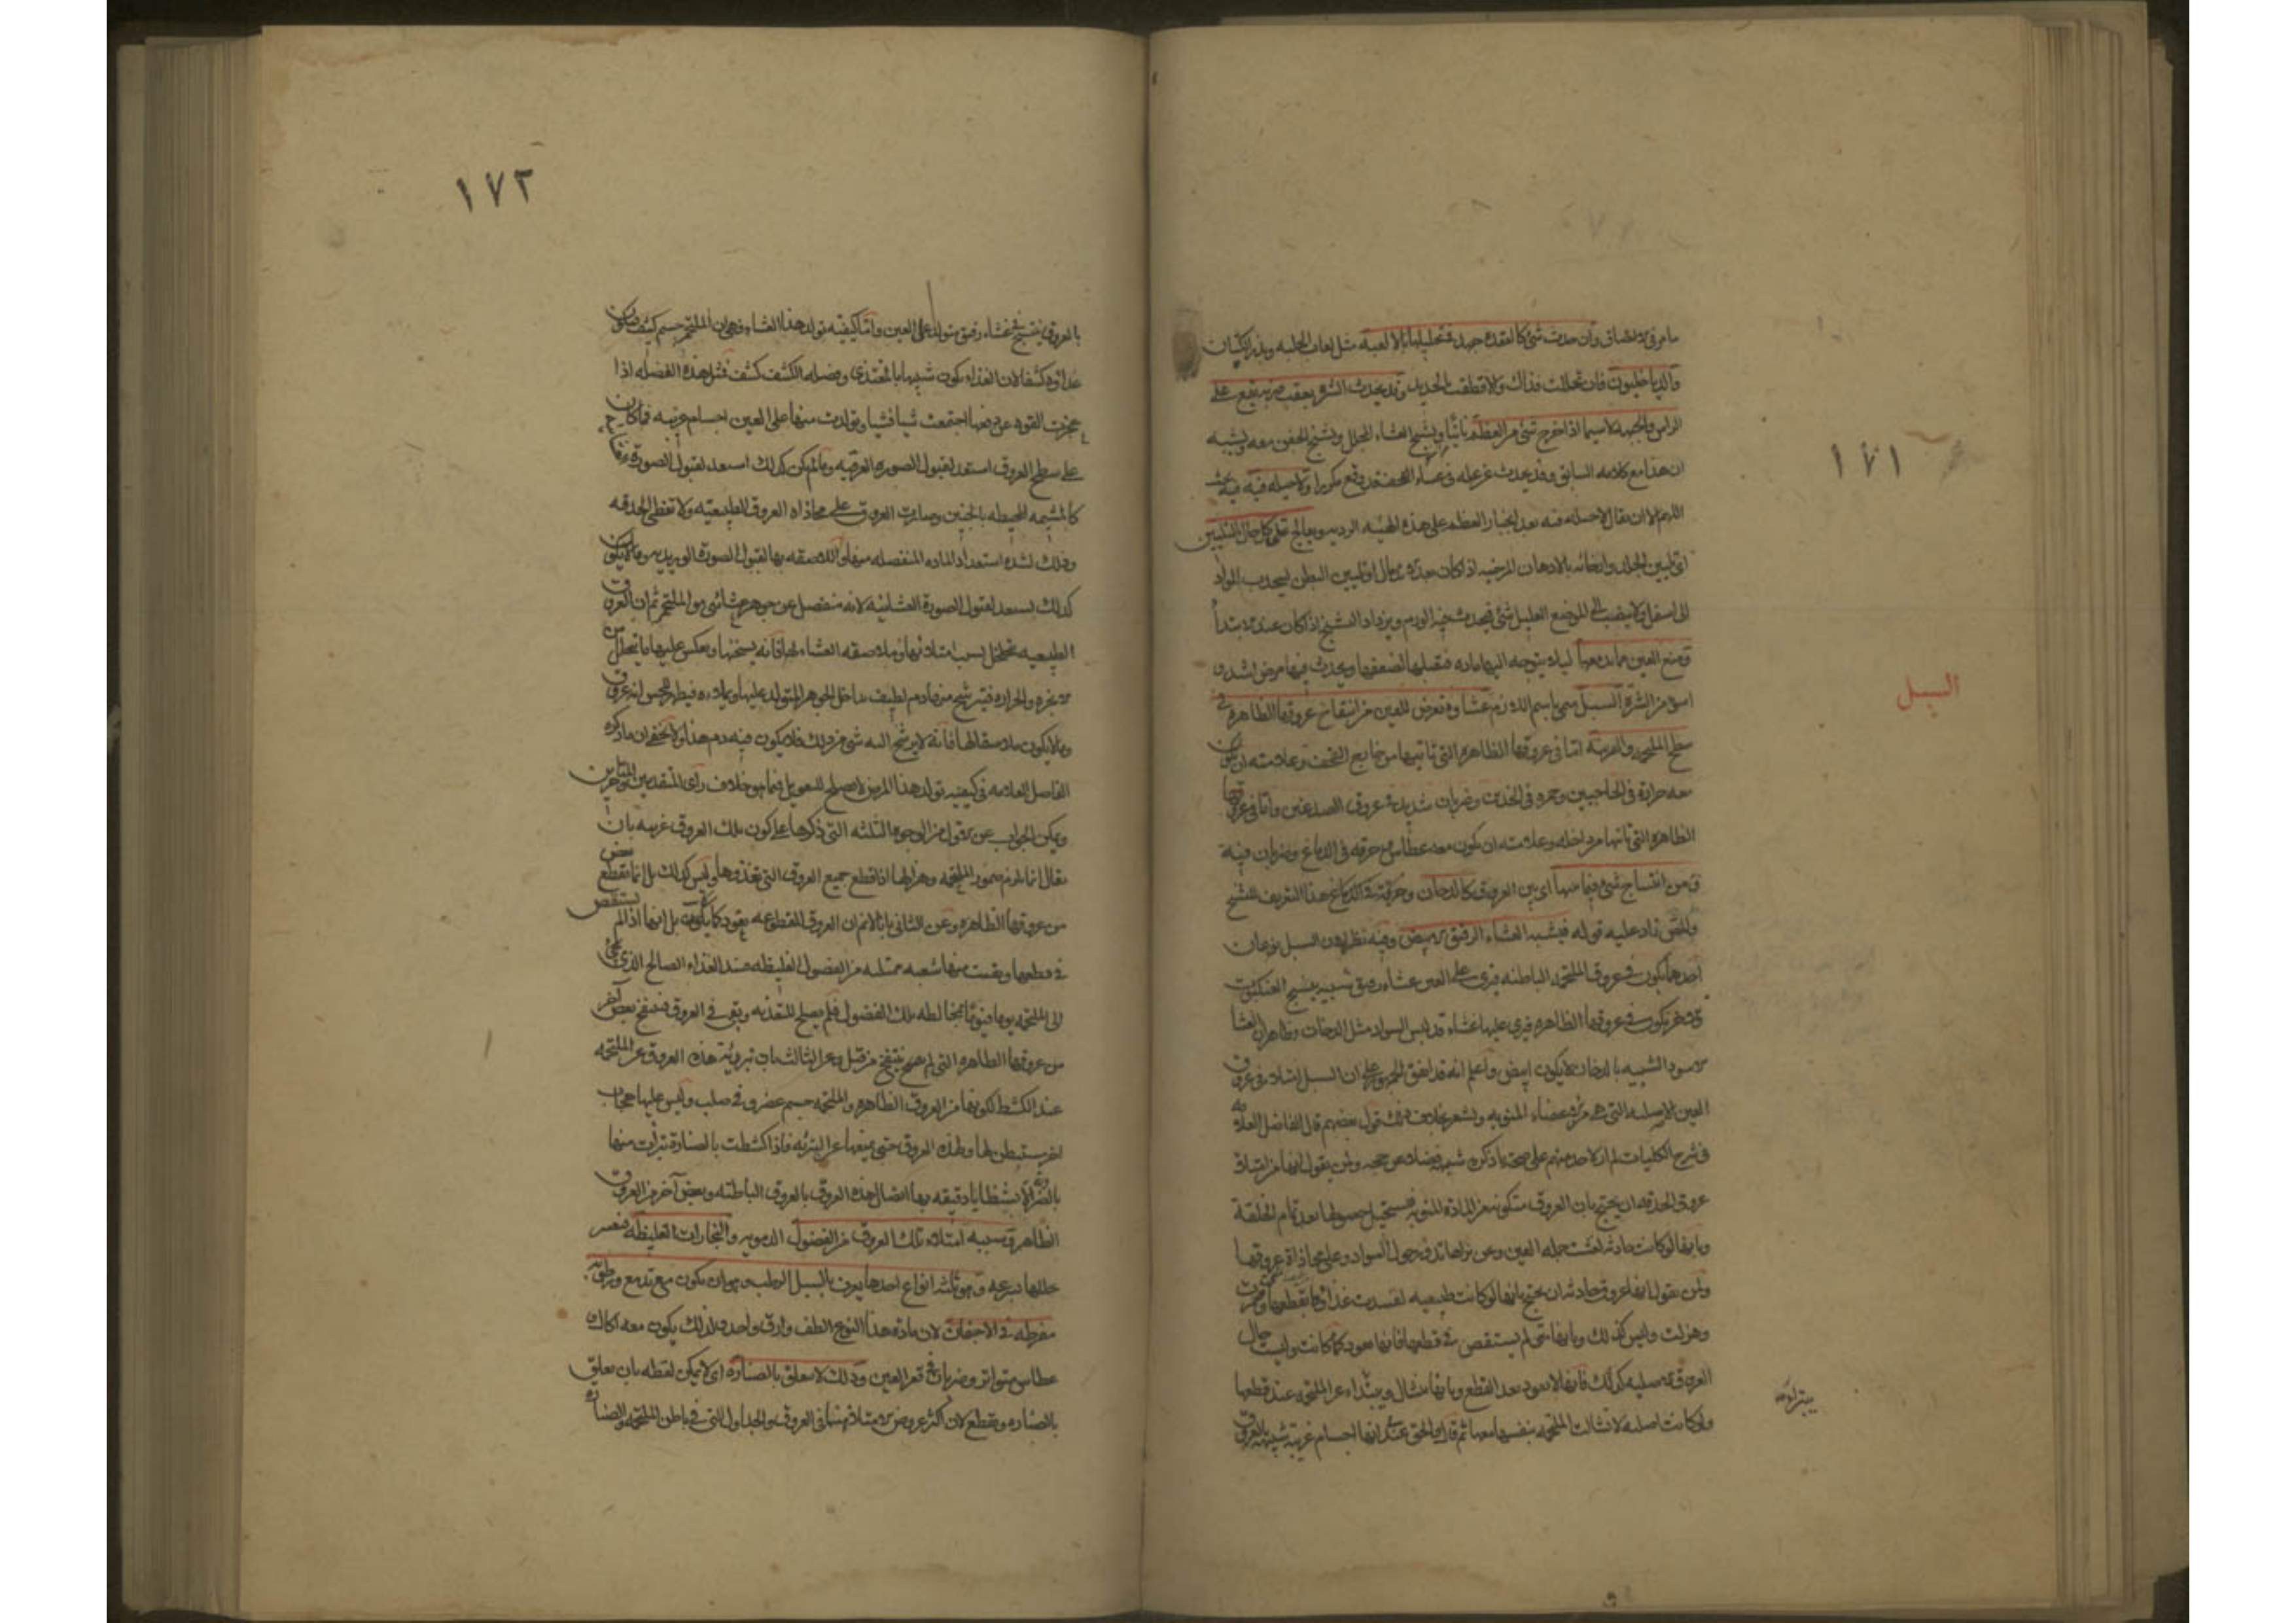 ١٧١
السبل
مامر في الالصاق وان حدث شئ كالعقدة جهد في تحليلها بالالعبه مثل لعاب الحلبه وبذر الكتان
والدياخليون فان تحللت فذاك والا قطعت بالحديد وقد يحدث الشتره بعقب ضربه تقع على
الراس والجبهه لاسيما اذا خرج شئ من العظم ناتيا ويشنج الغشاء المجلل ويشنج الجفن معه ويشبه
ان هذا مع كلامه السابق وقد يحدث عن عله في غشاء القحف قد وقع مكررا ولا حيله فيه فيه بحث
اللهم الا ان يقال لا حيله فيه بعد انجبار العظم على هذه الهيئه الرديه ويعالج على كل حال بالتليين
اي تليين الجلد وارخائه بالادهان المرخيه اذا كان او تليين البطن لينجذب المواد
الى اسفل ولا ينصب الى الموضع العليل شئ فيحدث فيه الورم ويزداد التشنج اذا كان عند الابتدا
ومنع العين مما يدمعها ليلا يتوجه اليها ماده فتقبلها لضعفها ويحدث فيها مرض اشد
اسوء من الشتره السبل سمى باسم اللازم غشاوه تعرض للعين من انتفاخ عروقها الظاهره في
سطح الملتحمه والقرنيه اما في عروقها الظاهره التي تاتيها من خارج القحف وعلامته ان يكون
معه حرارة في الحاجبين وحمره في الخدين وضربان شديد في عروق الصدغين واما في عروقها
الظاهره التي تاتيها من داخله وعلامته ان يكون معه عطاس مع حرقه في الدماغ وضربان فيه
ومن انتساج شئ فيما بينها اي بين العروق كالدخان وحرقة في الدماغ هذا التعريف للشيخ
والمص زاد عليه قوله فيشبه الغشاء الرقيق الابيض وفيه نظر لان السبل نوعان
احدهما يكون في عروق الملتحمه الباطنه فيرى على العين غشاء رقيق شبيه بنسج العنكبوت
والاخر يكون في عروقها الظاهره فيرى عليها غشاء قد لبس السواد مثل الدخان وظاهر ان الغشا
الاسود الشبيه بالدخان لا يكون ابيض واعلم انه قد اتفق الجمهور على ان السبل امتلاء في عروق
العين الاصليه التي هي من الاعضاء المنويه ويشعر بخلاف ذلك قول بعضهم قال الفاضل العلامه
في شرح الكليات لم ار لاحد منهم على صحة ما ذكره شبهه فضلا عن حجه ولمن يقول انها من امتلاء
عروق الحدقه ان يحتج بان العروق متكونه من المادة المنويه فيستحيل حصولها بعد تمام الخلقة
وبانها لو كانت حادثه لغشت جمله العين وعن نراها تدور حول السواد وعلى محاذاة عروقها
ولمن يقول انها عروق حادثه ان يحتج بانها لو كانت طبيعيه لفسدت غذائها بقطعها وضمرت
وهزلت وليس كذلك وبانها متى لم يستقص في قطعها فانها تعود كما كانت وليست حال
العروق الاصليه كذلك فانها لا تعود بعد القطع وبانها تنشال ويتبراء عن الملتحمه عند قطعها
ولو كانت اصليه لانشالت الملتحمه بنفسها معها ثم قال والحق عندي انها اجسام غريبه شبيهه بالعروق
١٧٢
بالعروق ينتسج في غشاء رقيق متولد على العين واما كيفيه تولد هذا الغشاء فهي ان الملتحم جسم كثيف فيكون
غذاؤه كثيفا لان الغذاء يكون شبيها بالمغتذي وفضله الكثيف كثيف فمثل هذه الفضله اذا
عجزت القوه عن دفعها اجتمعت شيا فشيا وتولدت منها على العين اجسام غريبه فما كان
على سطح العروق استعد لقبول الصوره العرقيه وما لم يكن كذلك استعد لقبول الصوره
كالمشيمه المحيطه بالجنين وصارت العروق على محاذاه العروق الطبيعيه ولا تغطي الحدقه
وذلك لشده استعداد الماده المنفصله منها والملاصقه بها لقبول الصورة الوريديه وما لا يكون
كذلك يستعد لقبول الصورة الغشائيه لانه منفصل عن جوهر غشائي هو الملتحم ثم ان العروق
الطبيعيه تتخلخل بسبب امتلائها وملاصقه الغشاء لها فانه يسخنها ويعكس عليها ما يتحلل من
الابخره والحراره فيترشح منها دم لطيف يداخل الجوهر المتولد عليها ويمادده فيظهر للحس انه عروق
وما لا يكون ملاصقا لها فانه لا يترشح اليه شئ من ذلك فلا يكون فيه دم هذا ولا يخفى ان ما ذكره
الفاضل العلامه في كيفيه تولد هذا المرض لا يصلح للتعويل فيما هو خلاف راى المتقدمين والمتاخرين
ويمكن الجواب عن الاول من الوجوه الثلثه التي ذكرها على كون تلك العروق غريبه بان
يقال انما يلزم ضمور الملتحمه وهزالها اذا قطع جميع العروق التي تغذوها وليس كذلك بل انما يقطع بعض
من عروقها الظاهره وعن الثاني بانا لا نم ان العروق المقطوعه يعود كما كانت بل انها اذا لم يستقص
في قطعها وبقيت منها شعبه ممتليه من الفضول الغليظه فسد الغذاء الصالح الذي يجئ
الى الملتحمه يوما فيوما بمخالطه تلك الفضول فلم يصلح للتغذيه وبقى في العروق فينتفخ بعض آخر
من عروقها الظاهره التي لم ينتفخ من قبل وعن الثالث بان تبريه هذه العروق عن الملتحمه
عند الكشط لكونها من العروق الظاهره والملتحمه جسم غضروفي صلب وليس عليها حجاب
اخر يستبطن لها ولهذه العروق حتى يمنعها عن التبرئه فاذا كشطت بالصنارة تبرأت منها
بالضرورة الا شظايا دقيقه بها اتصال هذه العروق بالعروق الباطنه وبعض آخر من العروق
الظاهره وسببه امتلاء تلك العروق من الفضول الدمويه والبخارات الغليظه فيعسر
تحللها بسرعه وهو ثلثه انواع احدها يعرف بالسبل الرطب وهو ان يكون مع تدمع ورطوبه
مفرطه في الاجفان لان ماده هذا النوع الطف وارق واحد ولذلك يكون معه اكال و
عطاس متواتر وضربان في قعر العين وذلك لا يتعلق بالصناره اي لا يمكن لقطه بان يعلق
بالصناره ويقطع لان اكثر عروض الامتلاء فيه انما هو في العروق والجداول التي في باطن الملتحمه والصناره